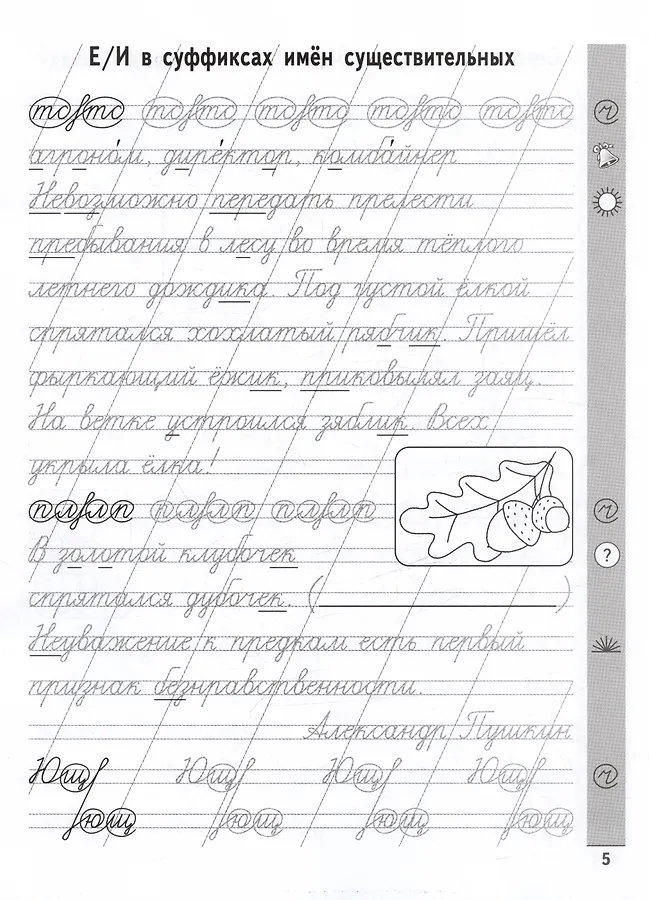 Е/И в суффиксах имён существительных
то то то то то то то то то то
агроно́м, дире́ктор, комба́йнер
Невозможно передать прелести
пребывания в лесу во время тёплого
летнего дождика. Под густой ёлкой
спрятался хохлатый рябчик. Пришёл
фыркающий ёжик, приковылял заяц.
На ветке устроился зяблик. Всех
укрыла ёлка!
В золотой клубочек
?
спрятался дубочек. ( )
Неуважение к предкам есть первый
признак безнравственности.
Александр Пушкин
Ющ Ющ Ющ Ющ
ющ ющ ющ ющ
5